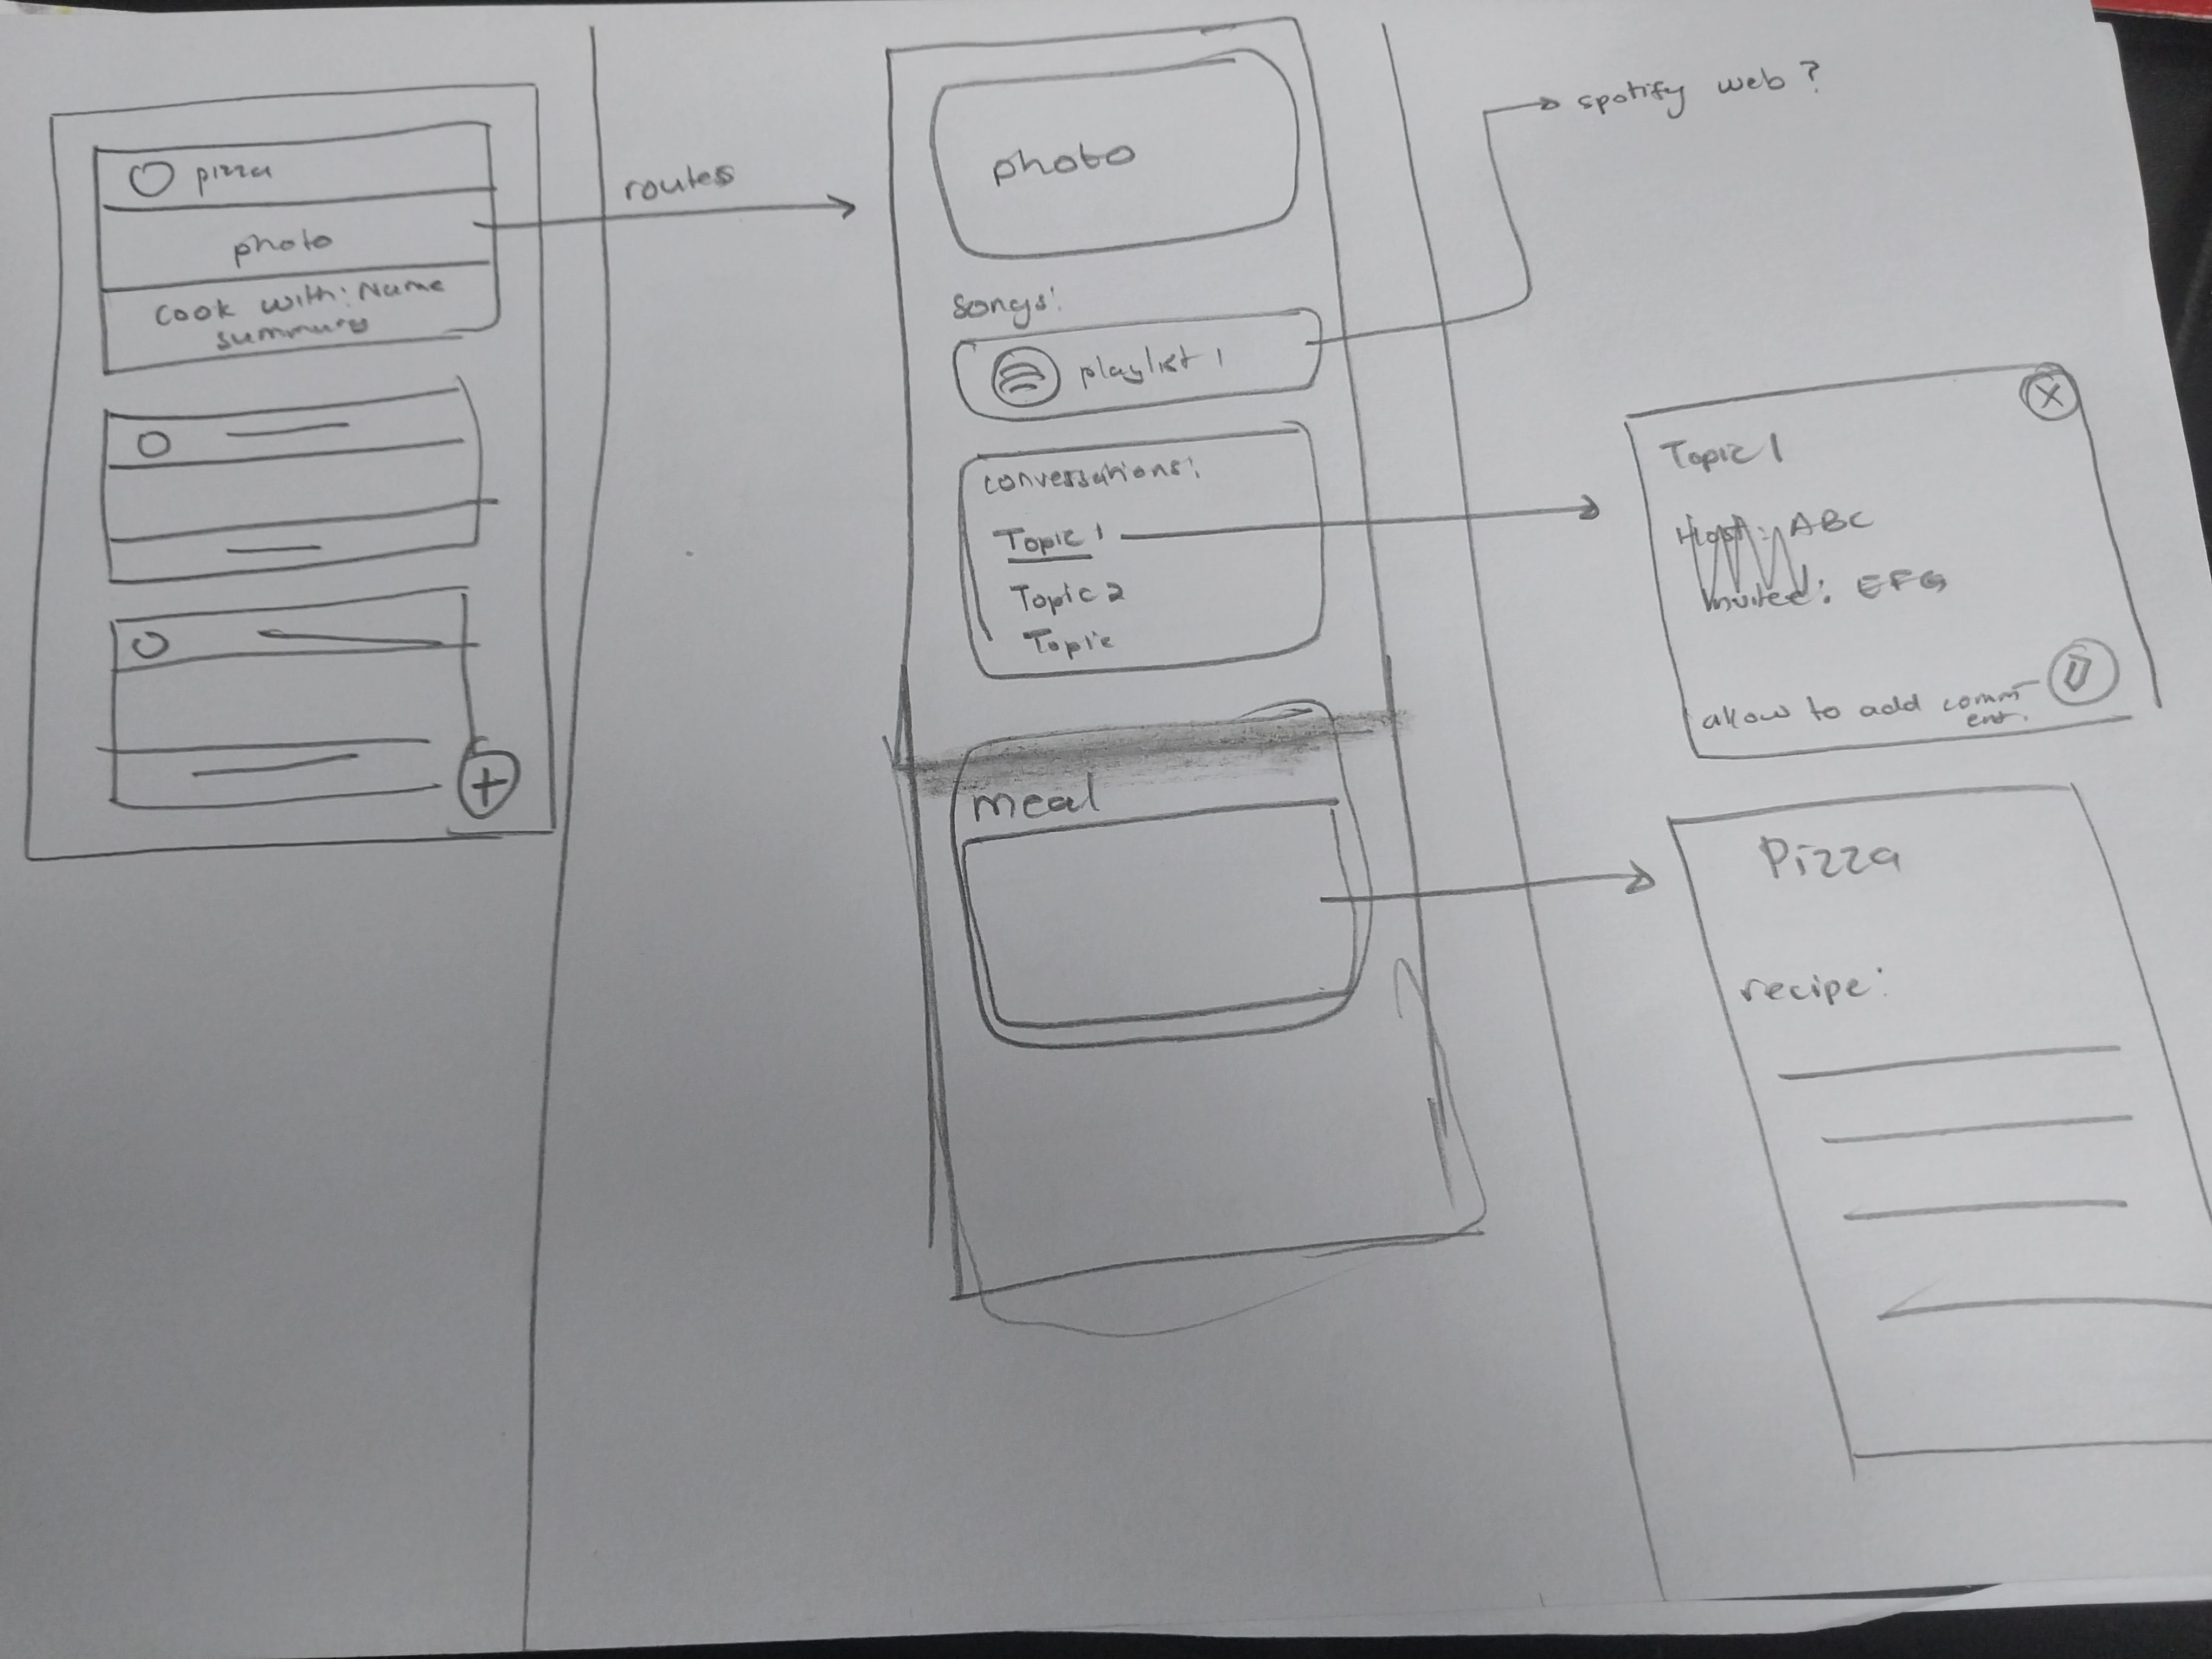 pizza
photo
Cook with: Name
summury
routes
photo
songs:
playlist 1
conversations:
Topic 1
Topic 2
Topic
meal
spotify web?
X
Topic 1
Host: ABC
Invitee: EFG
allow to add comm
ent.
Pizza
recipe: